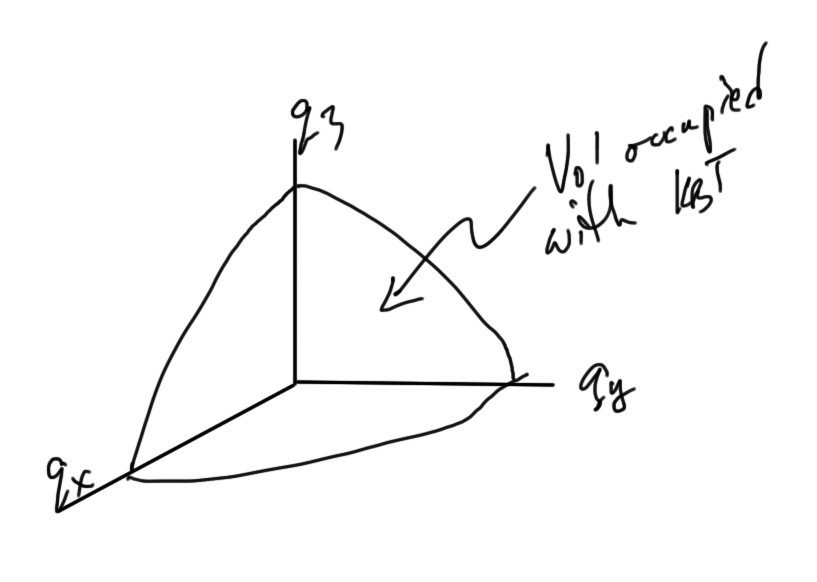 q3
Vol occupied
with kBT
qy
qx